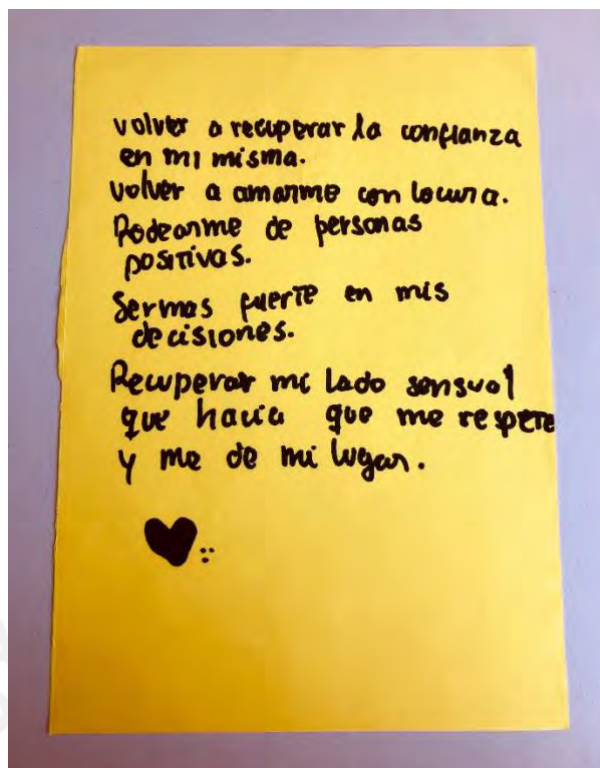 volver a recuperar la confianza
en mi misma.
volver a amarme con locura.
Rodearme de personas
positivas.
Sermas fuerte en mis
decisiones.
Recuperar mi lado sensual
que hacia que me respete
y me de mi lugar.